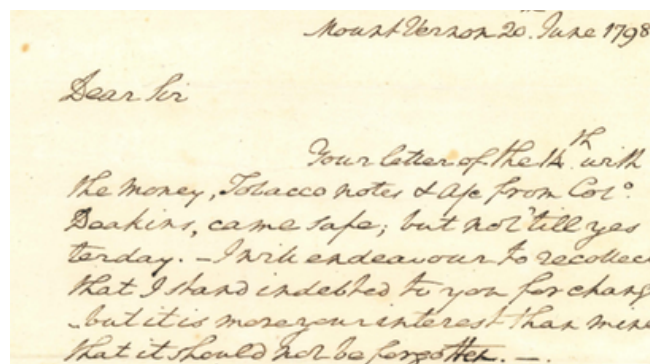 Mount Vernon 20. June 1798
Dear Sir
Your letter of the 14th with
the money, Tobacco notes & a/c from Colo.
Deakins, came safe; but not 'till yes
terday. – I will endeavour to recollec
that I stand indebted to you for chang
– but it is more your interest than mine
that it should not be forgotten. —.